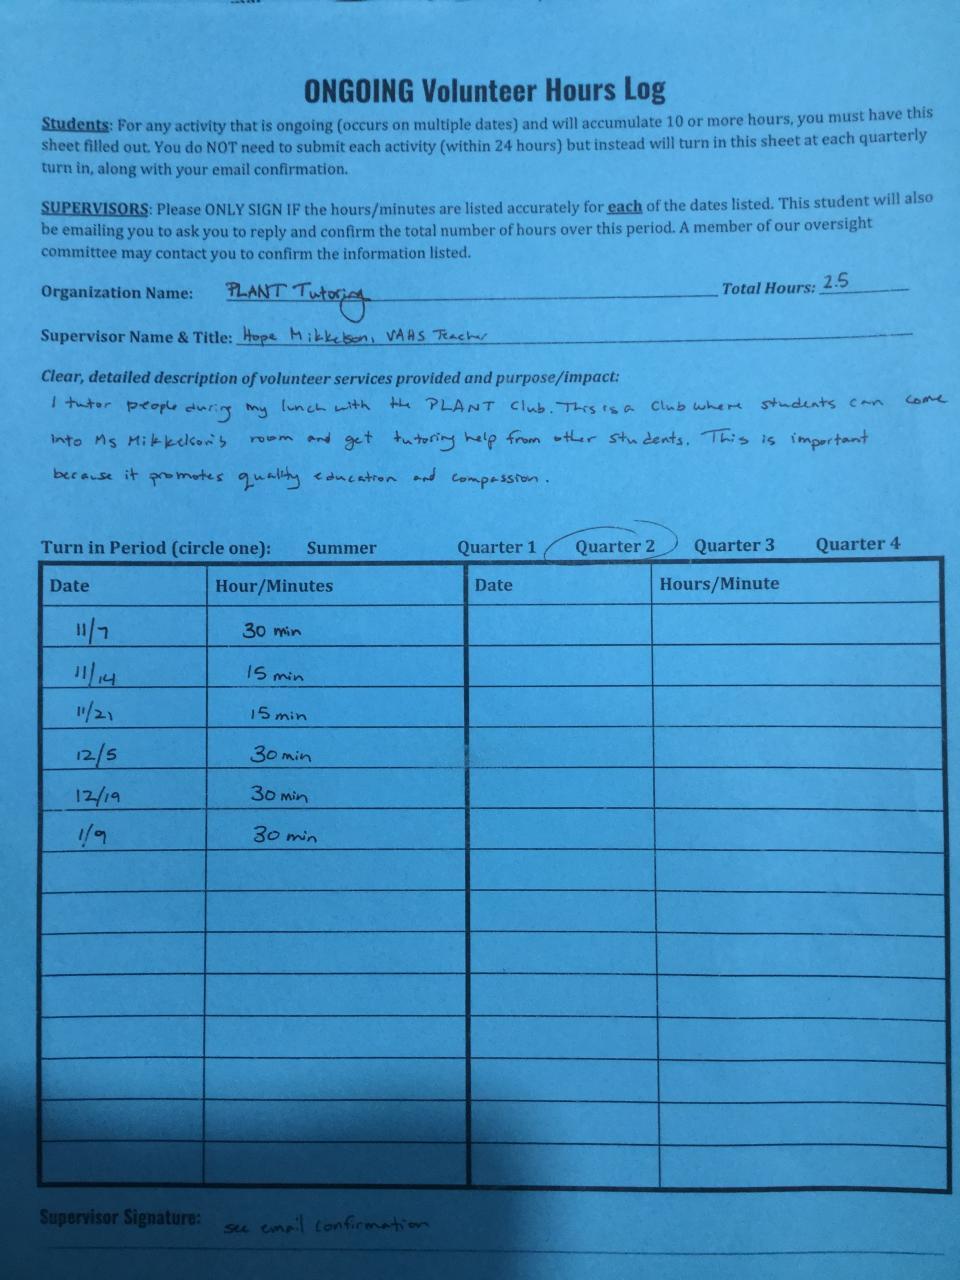 ONGOING Volunteer Hours Log
Students: For any activity that is ongoing (occurs on multiple dates) and will accumulate 10 or more hours, you must have this
sheet filled out. You do NOT need to submit each activity (within 24 hours) but instead will turn in this sheet at each quarterly
turn in, along with your email confirmation.
SUPERVISORS: Please ONLY SIGN IF the hours/minutes are listed accurately for each of the dates listed. This student will also
be emailing you to ask you to reply and confirm the total number of hours over this period. A member of our oversight
committee may contact you to confirm the information listed.
Organization Name: PLANT Tutoring Total Hours: 2.5
Supervisor Name & Title: Hope Mikkelson, VAHS Teacher
Clear, detailed description of volunteer services provided and purpose/impact:
I tutor people during my lunch with the PLANT Club. This is a Club where students can come
into Ms Mikkelson's room and get tutoring help from other students. This is important
because it promotes quality education and compassion.
Turn in Period (circle one): Summer Quarter 1 Quarter 2 Quarter 3 Quarter 4
Date Hour/Minutes Date Hours/Minute
11/7 30 min
11/14 15 min
11/21 15 min
12/5 30 min
12/19 30 min
1/9 30 min
Supervisor Signature: see email confirmation